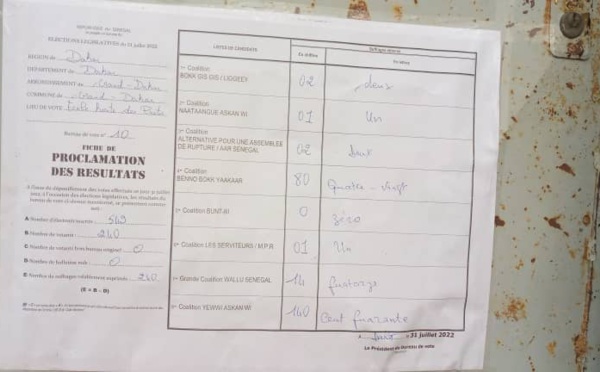 REPUBLIQUE DU SENEGAL
ELECTIONS LEGISLATIVES du 31 juillet 2022
REGION de Dakar
DEPARTEMENT de Dakar
ARRONDISSEMENT de Grand-Dakar
COMMUNE de Grand-Dakar
LIEU DE VOTE: Ecole
Bureau de vote n° 10
FICHE DE
PROCLAMATION
DES RESULTATS
A l'issue du dépouillement des votes effectués ce jour 31 juillet
2022, à l'occasion des élections législatives, les résultats du
bureau de vote ci-dessus mentionné, se présentent comme
suit :
A Nombre d'électeurs inscrits : 549
B Nombre de votants : 240
C Nombre de votants hors bureau original : 0
D Nombre de bulletins nuls : 0
E Nombre de suffrages valablement exprimés : 240
(E = B - D)
LISTES DE CANDIDATS
Suffrages obtenus
En chiffre
En lettres
Coalition
BOKK GIS GIS / LIGGEEY
02
deux
Coalition
NAATAANGUE ASKAN WI
01
Un
Coalition
ALTERNATIVE POUR UNE ASSEMBLEE
DE RUPTURE / AAR SENEGAL
02
deux
Coalition
BENNO BOKK YAAKAAR
80
Quatre-vingt
Coalition BUNT-BI
0
zéro
Coalition LES SERVITEURS / M.P.R.
01
Un
Grande Coalition WALLU SENEGAL
14
quatorze
Coalition YEWWI ASKAN WI
140
Cent quarante
31 juillet 2022
Le Président de Bureau de vote